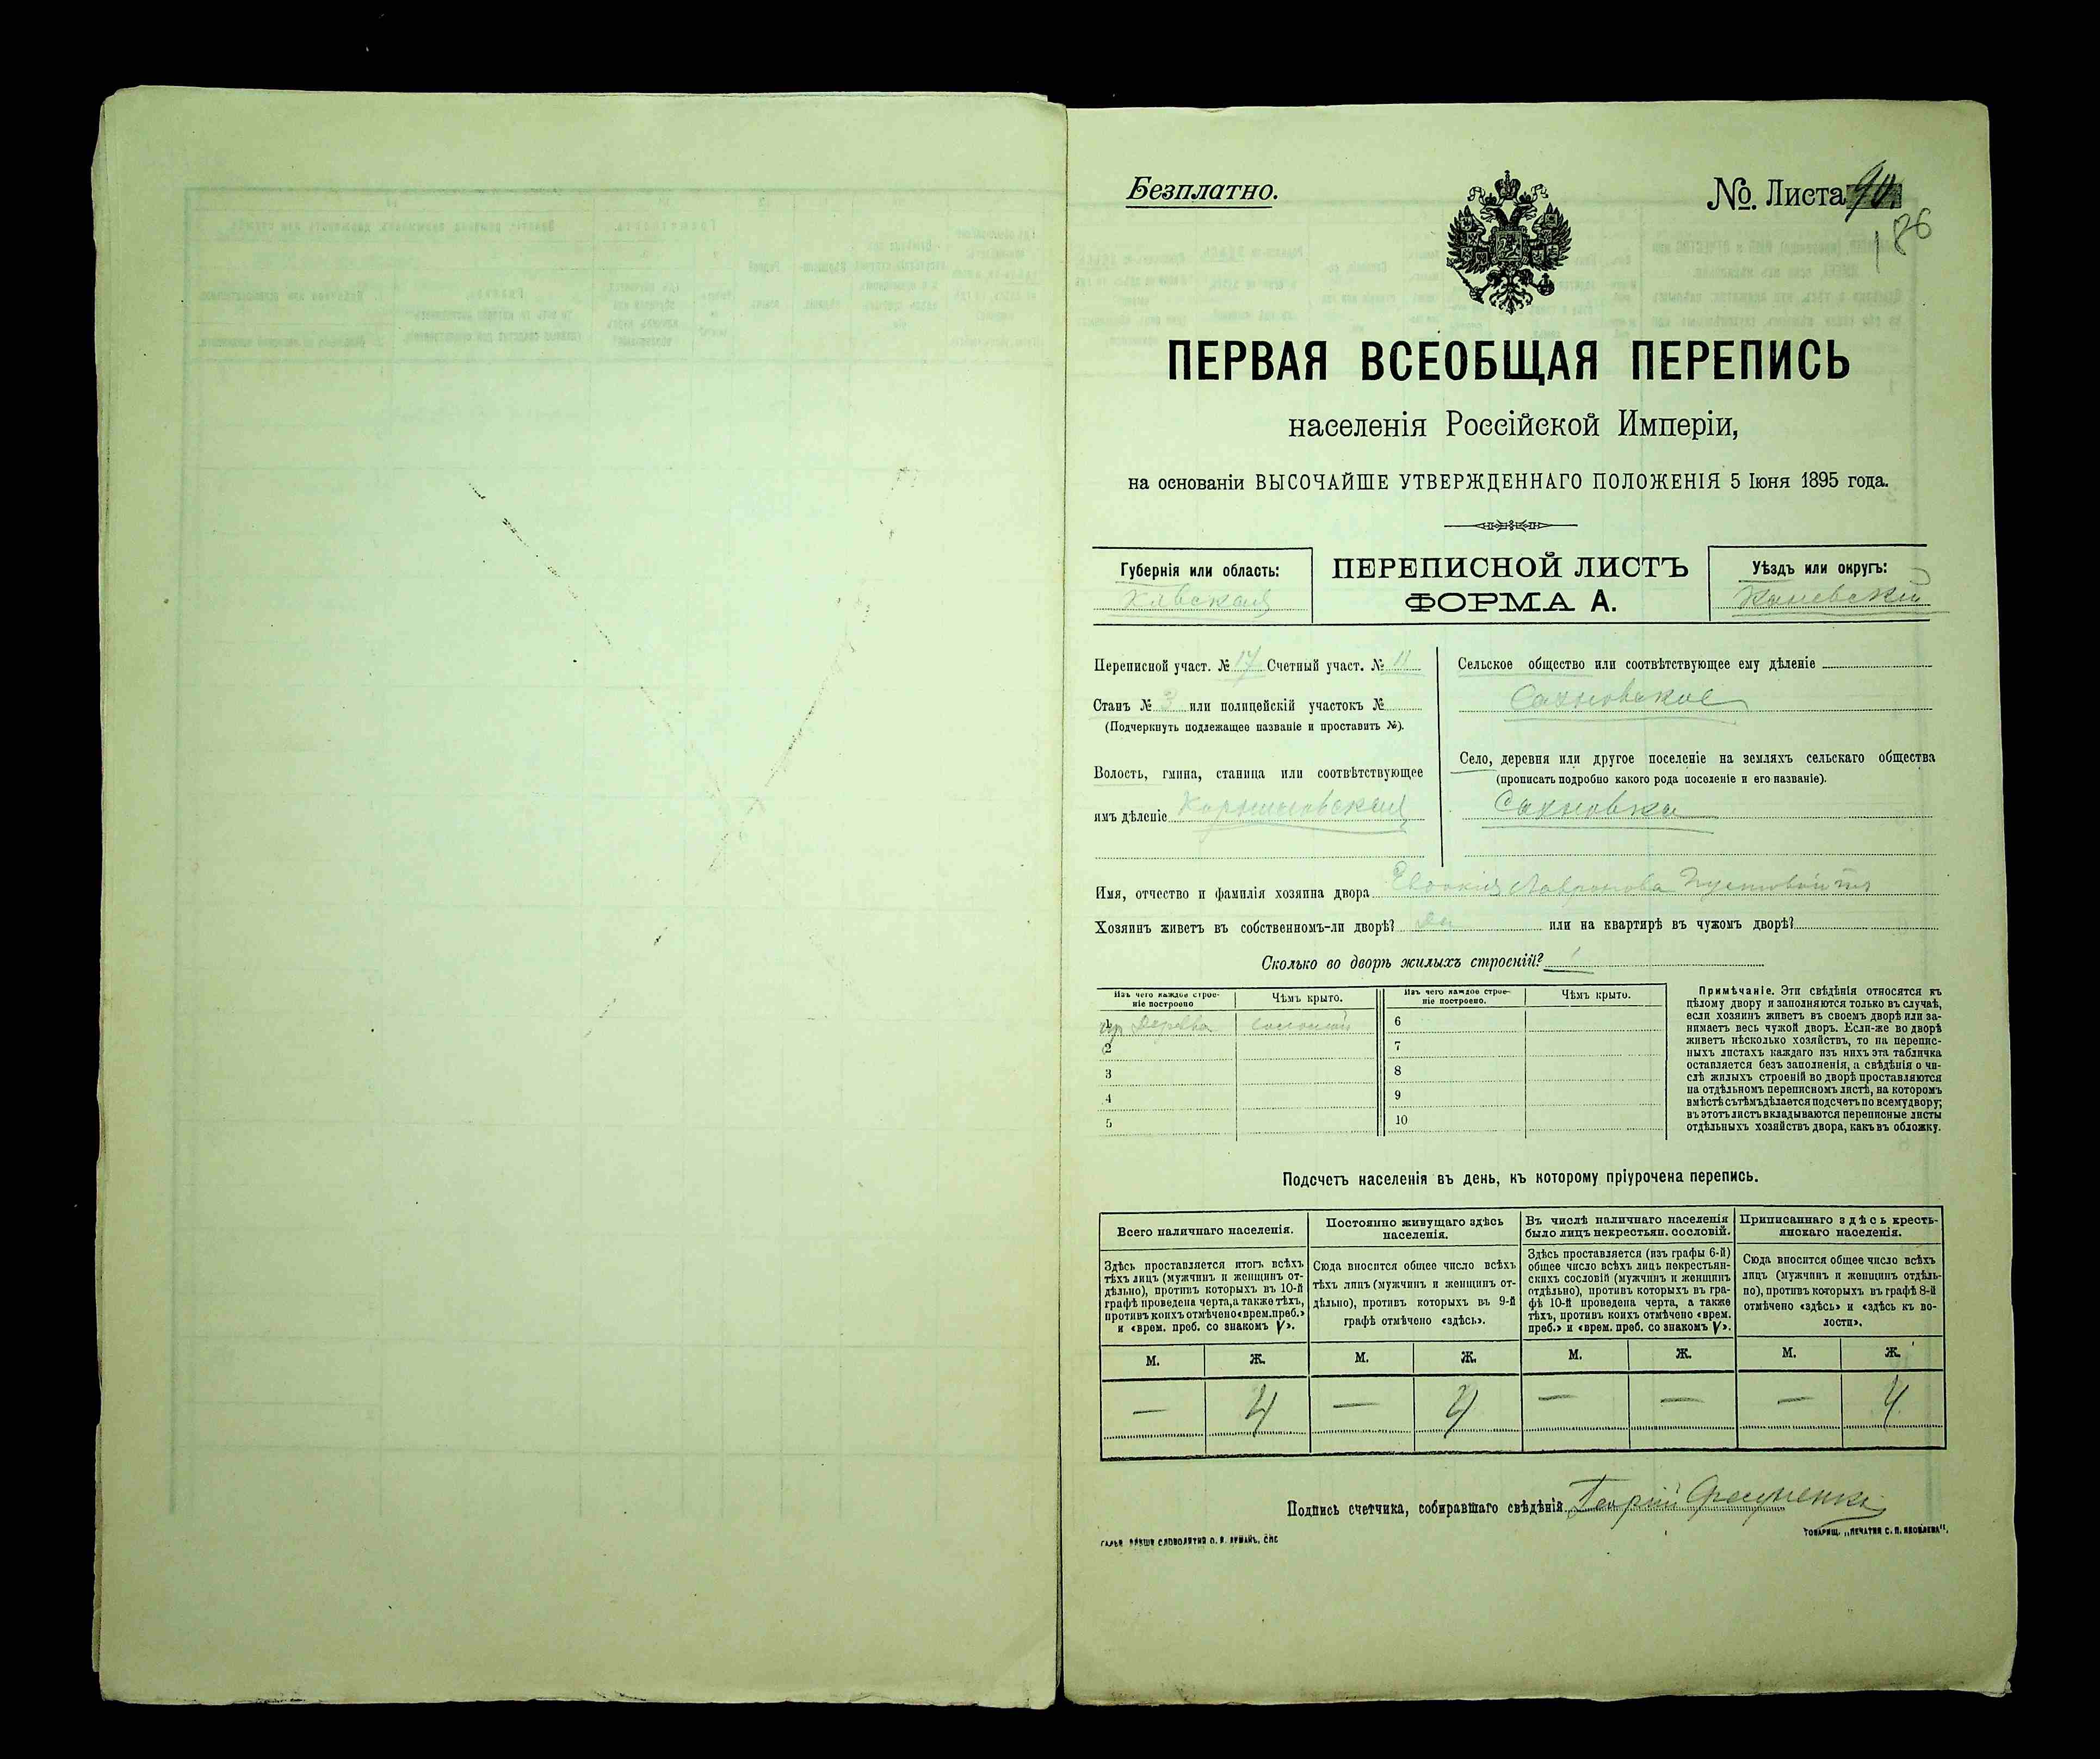 Безплатно.
№ Листа 90.
186
ПЕРВАЯ ВСЕОБЩАЯ ПЕРЕПИСЬ
населенія Россійской Имперіи,
на основаніи ВЫСОЧАЙШЕ УТВЕРЖДЕННАГО ПОЛОЖЕНІЯ 5 Іюня 1895 года.
Губернія или область:
Кіевская
ПЕРЕПИСНОЙ ЛИСТЪ
ФОРМА А.
Уѣздъ или округъ:
Каневскій
Переписной участ. № 17 Счетный участ. № 11
Станъ № 3 или полицейскій участокъ №
(Подчеркнуть подлежащее названіе и проставить №).
Волость, гмина, станица или соотвѣтствующее
имъ дѣленіе
Сельское общество или соотвѣтствующее ему дѣленіе
Сахновское
Село, деревня или другое поселеніе на земляхъ сельскаго общества
(прописать подробно какого рода поселеніе и его названіе).
Сахновка
Имя, отчество и фамилія хозяина двора Евдокія
Хозяинъ живетъ въ собственномъ-ли дворѣ? Да или на квартирѣ въ чужомъ дворѣ?
Сколько во дворѣ жилыхъ строеній? 1
Изъ чего каждое строе-
ніе построено
Чѣмъ крыто.
Изъ чего каждое строе-
ніе построено.
Чѣмъ крыто.
1 дерева соломой
2
3
4
5
6
7
8
9
10
Примѣчаніе. Эти свѣдѣнія относятся къ
цѣлому двору и заполняются только въ случаѣ,
если хозяинъ живетъ въ своемъ дворѣ или за-
нимаетъ весь чужой дворъ. Если-же во дворѣ
живетъ нѣсколько хозяйствъ, то на перепис-
ныхъ листахъ каждаго изъ нихъ эта табличка
оставляется безъ заполненія, а свѣдѣнія о чи-
слѣ жилыхъ строеній во дворѣ проставляются
на отдѣльномъ переписномъ листѣ, на которомъ
вмѣстѣ съ тѣмъ дѣлается подсчетъ по всему двору;
въ этотъ листъ вкладываются переписные листы
отдѣльныхъ хозяйствъ двора, какъ въ обложку.
Подсчетъ населенія въ день, къ которому пріурочена перепись.
Всего наличнаго населенія.
Здѣсь проставляется итогъ всѣхъ
тѣхъ лицъ (мужчинъ и женщинъ от-
дѣльно), противъ которыхъ въ 10-й
графѣ проведена черта, а также тѣхъ,
противъ коихъ отмѣчено «врем. преб.»
и «врем. преб. со знакомъ V».
Постоянно живущаго здѣсь
населенія.
Сюда вносится общее число всѣхъ
тѣхъ лицъ (мужчинъ и женщинъ от-
дѣльно), противъ которыхъ въ 9-й
графѣ отмѣчено «здѣсь».
Въ числѣ наличнаго населенія
было лицъ некрестьян. сословій.
Здѣсь проставляется (изъ графы 6-й)
общее число всѣхъ лицъ некрестьян-
скихъ сословій (мужчинъ и женщинъ
отдѣльно), противъ которыхъ въ гра-
фѣ 10-й проведена черта, а также
тѣхъ, противъ коихъ отмѣчено «врем.
преб.» и «врем. преб. со знакомъ V».
Приписаннаго здѣсь кресть-
янскаго населенія.
Сюда вносится общее число всѣхъ
лицъ (мужчинъ и женщинъ отдѣль-
но), противъ которыхъ въ графѣ 8-й
отмѣчено «здѣсь» и «здѣсь къ во-
лости».
М. Ж. М. Ж. М. Ж. М. Ж.
— 4 — 4 — — — 4
Подпись счетчика, собиравшаго свѣдѣнія Георгій
ТОВАРИЩ. „ПЕЧАТНЯ С. П. ЯКОВЛЕВА“.